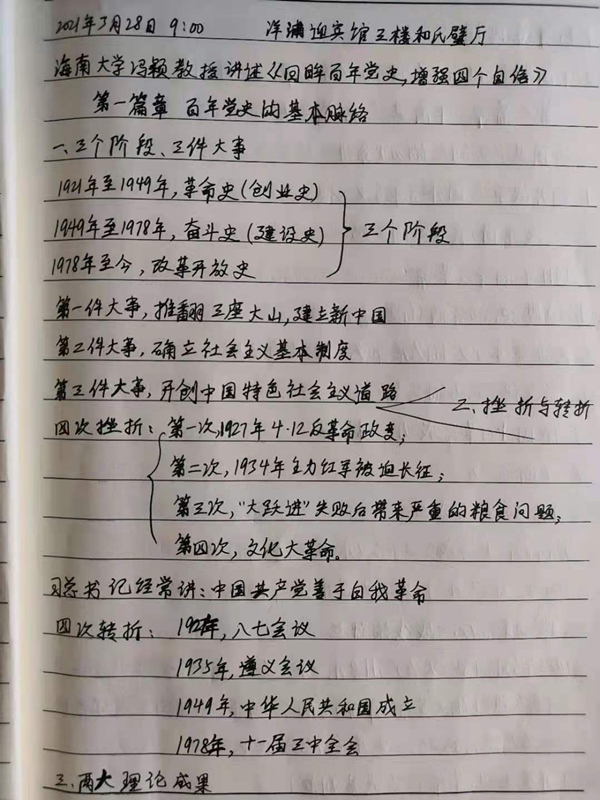 2021年3月28日 9:00 洋浦迎宾馆三楼和氏璧厅
海南大学冯颖教授讲述《回眸百年党史,增强四个自信》
第一篇章 百年党史的基本脉络
一、三个阶段、三件大事
1921年至1949年,革命史(创业史)
1949年至1978年,奋斗史(建设史)
三个阶段
1978年至今,改革开放史
第一件大事,推翻三座大山,建立新中国
第二件大事,确立社会主义基本制度
第三件大事,开创中国特色社会主义道路
二、挫折与转折
四次挫折:第一次,1927年4·12反革命政变;
第二次,1934年主力红军被迫长征;
第三次,"大跃进"失败后带来严重的粮食问题;
第四次,文化大革命。
习总书记经常讲:中国共产党善于自我革命
四次转折:1927年,八七会议
1935年,遵义会议
1949年,中华人民共和国成立
1978年,十一届三中全会
三、两大理论成果